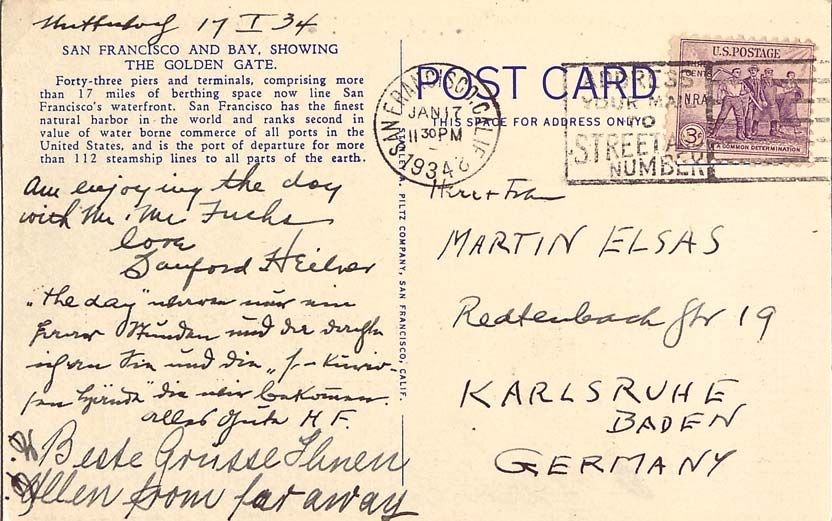 17 I 34
SAN FRANCISCO AND BAY, SHOWING
THE GOLDEN GATE.
Forty-three piers and terminals, comprising more
than 17 miles of berthing space now line San
Francisco's waterfront. San Francisco has the finest
natural harbor in the world and ranks second in
value of water borne commerce of all ports in the
United States, and is the port of departure for more
than 112 steamship lines to all parts of the earth.
Am enjoying the day
with Mr. Fuchs
love
Sanford
"the day" waren nur ein
Stunden und da dachte
ich an Sie und die
die wir bekommen.
alles Gute H F.
Beste Grüsse Ihnen
Allen from far away
STANLEY A. PILTZ COMPANY, SAN FRANCISCO, CALIF.
POST CARD
THIS SPACE FOR ADDRESS ONLY
SAN FRANCISCO, CALIF.
JAN 17
11 30 PM
1934
ADDRESS
YOUR MAIL
TO
STREET AND
NUMBER
U.S. POSTAGE
THREE
CENTS
N.R.A.
3¢
IN A COMMON DETERMINATION
Herr + Frau
MARTIN ELSAS
Redtenbach Str 19
KARLSRUHE
BADEN
GERMANY